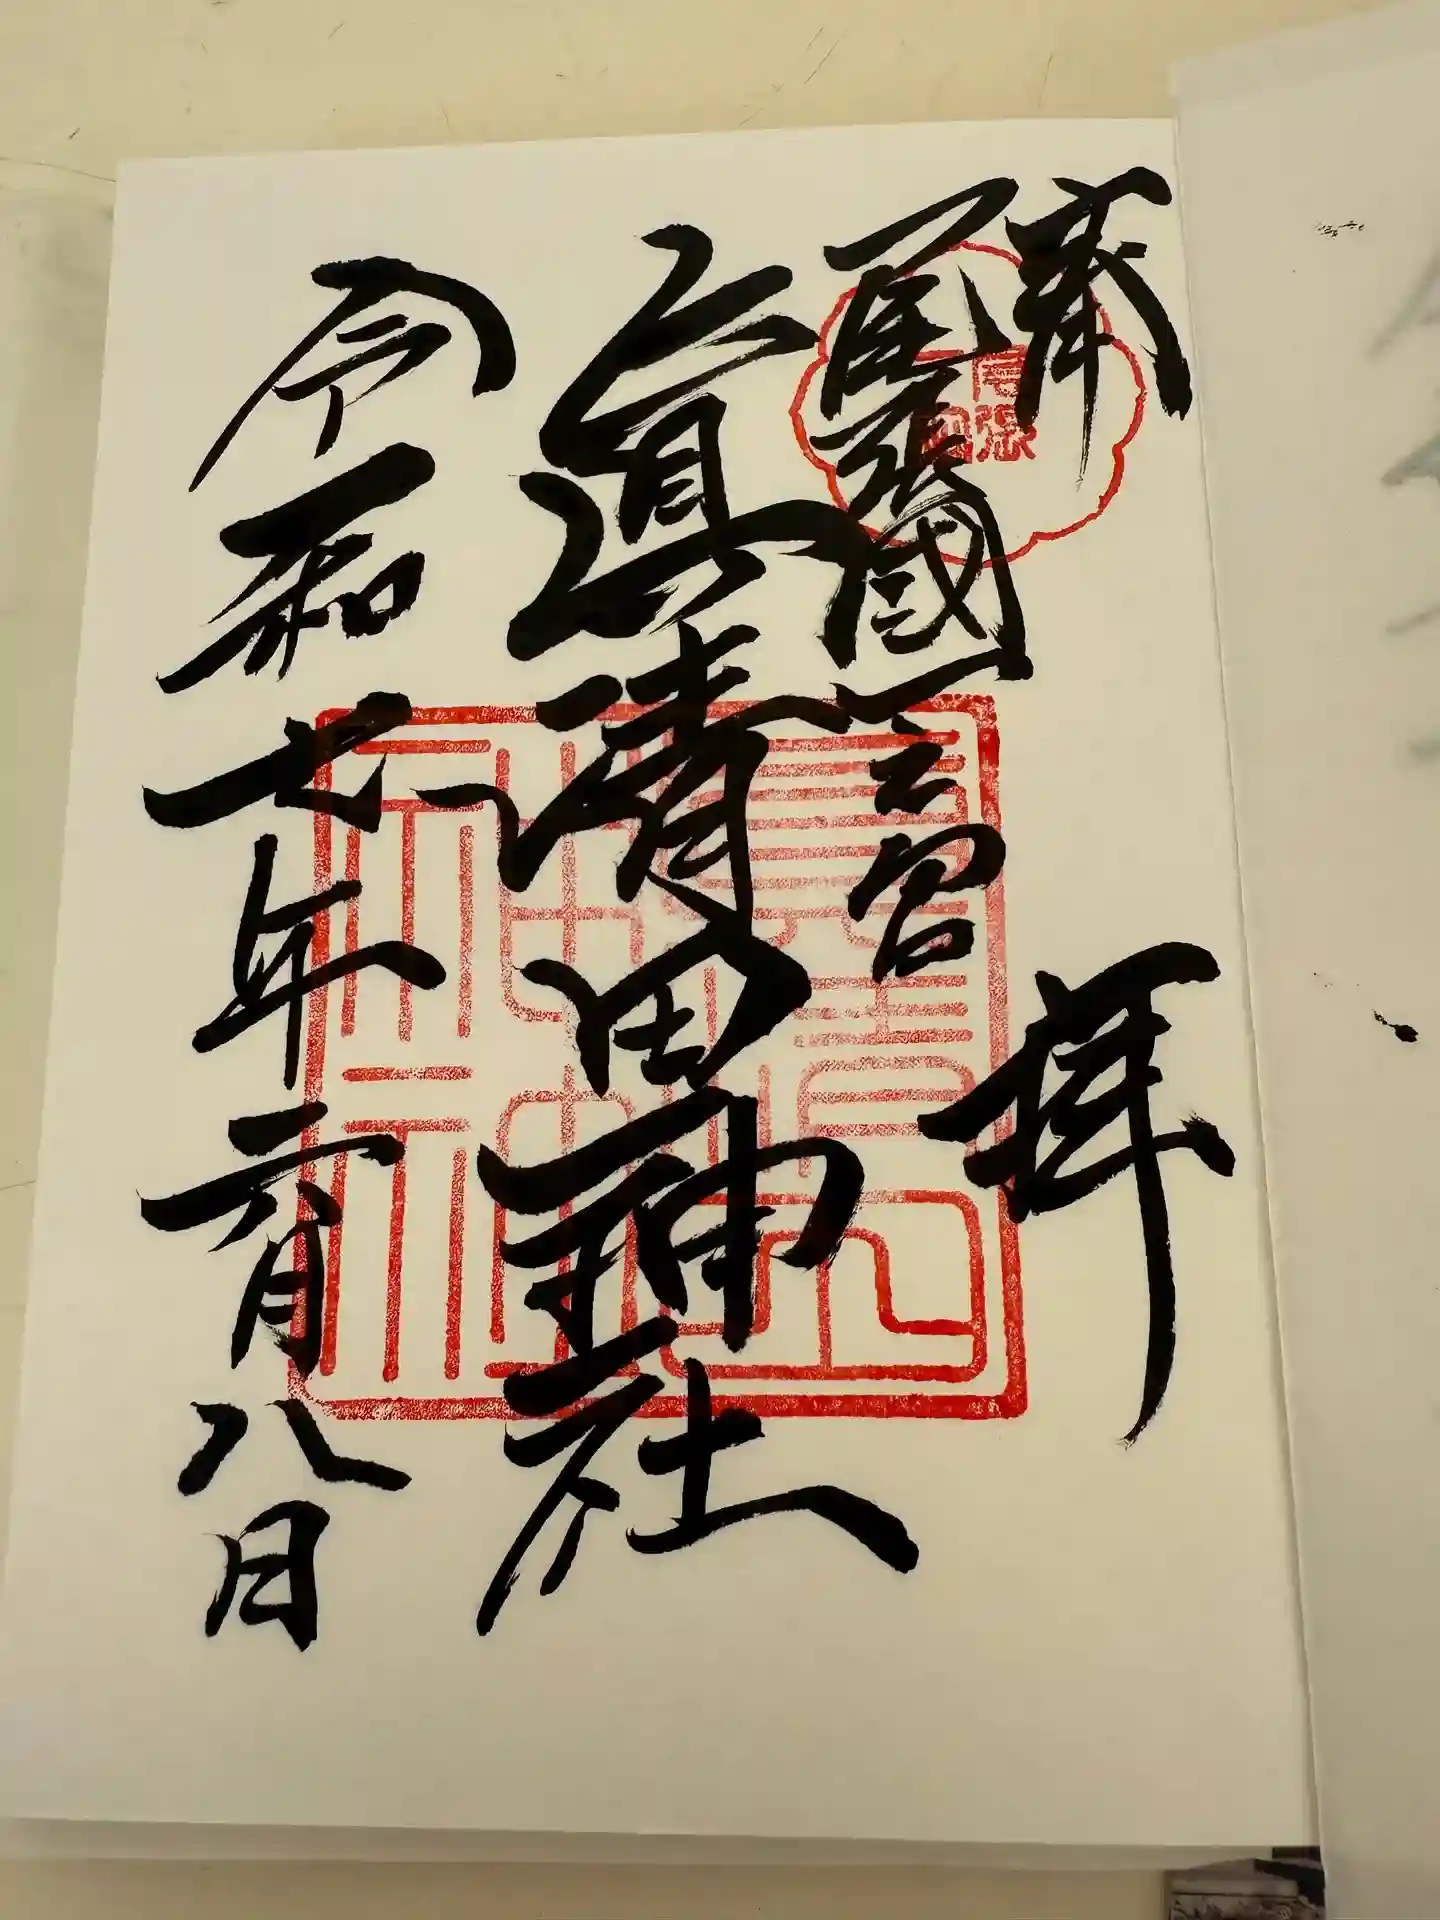 奉拝
尾張國一之宮
真清田神社
令和七年二月八日